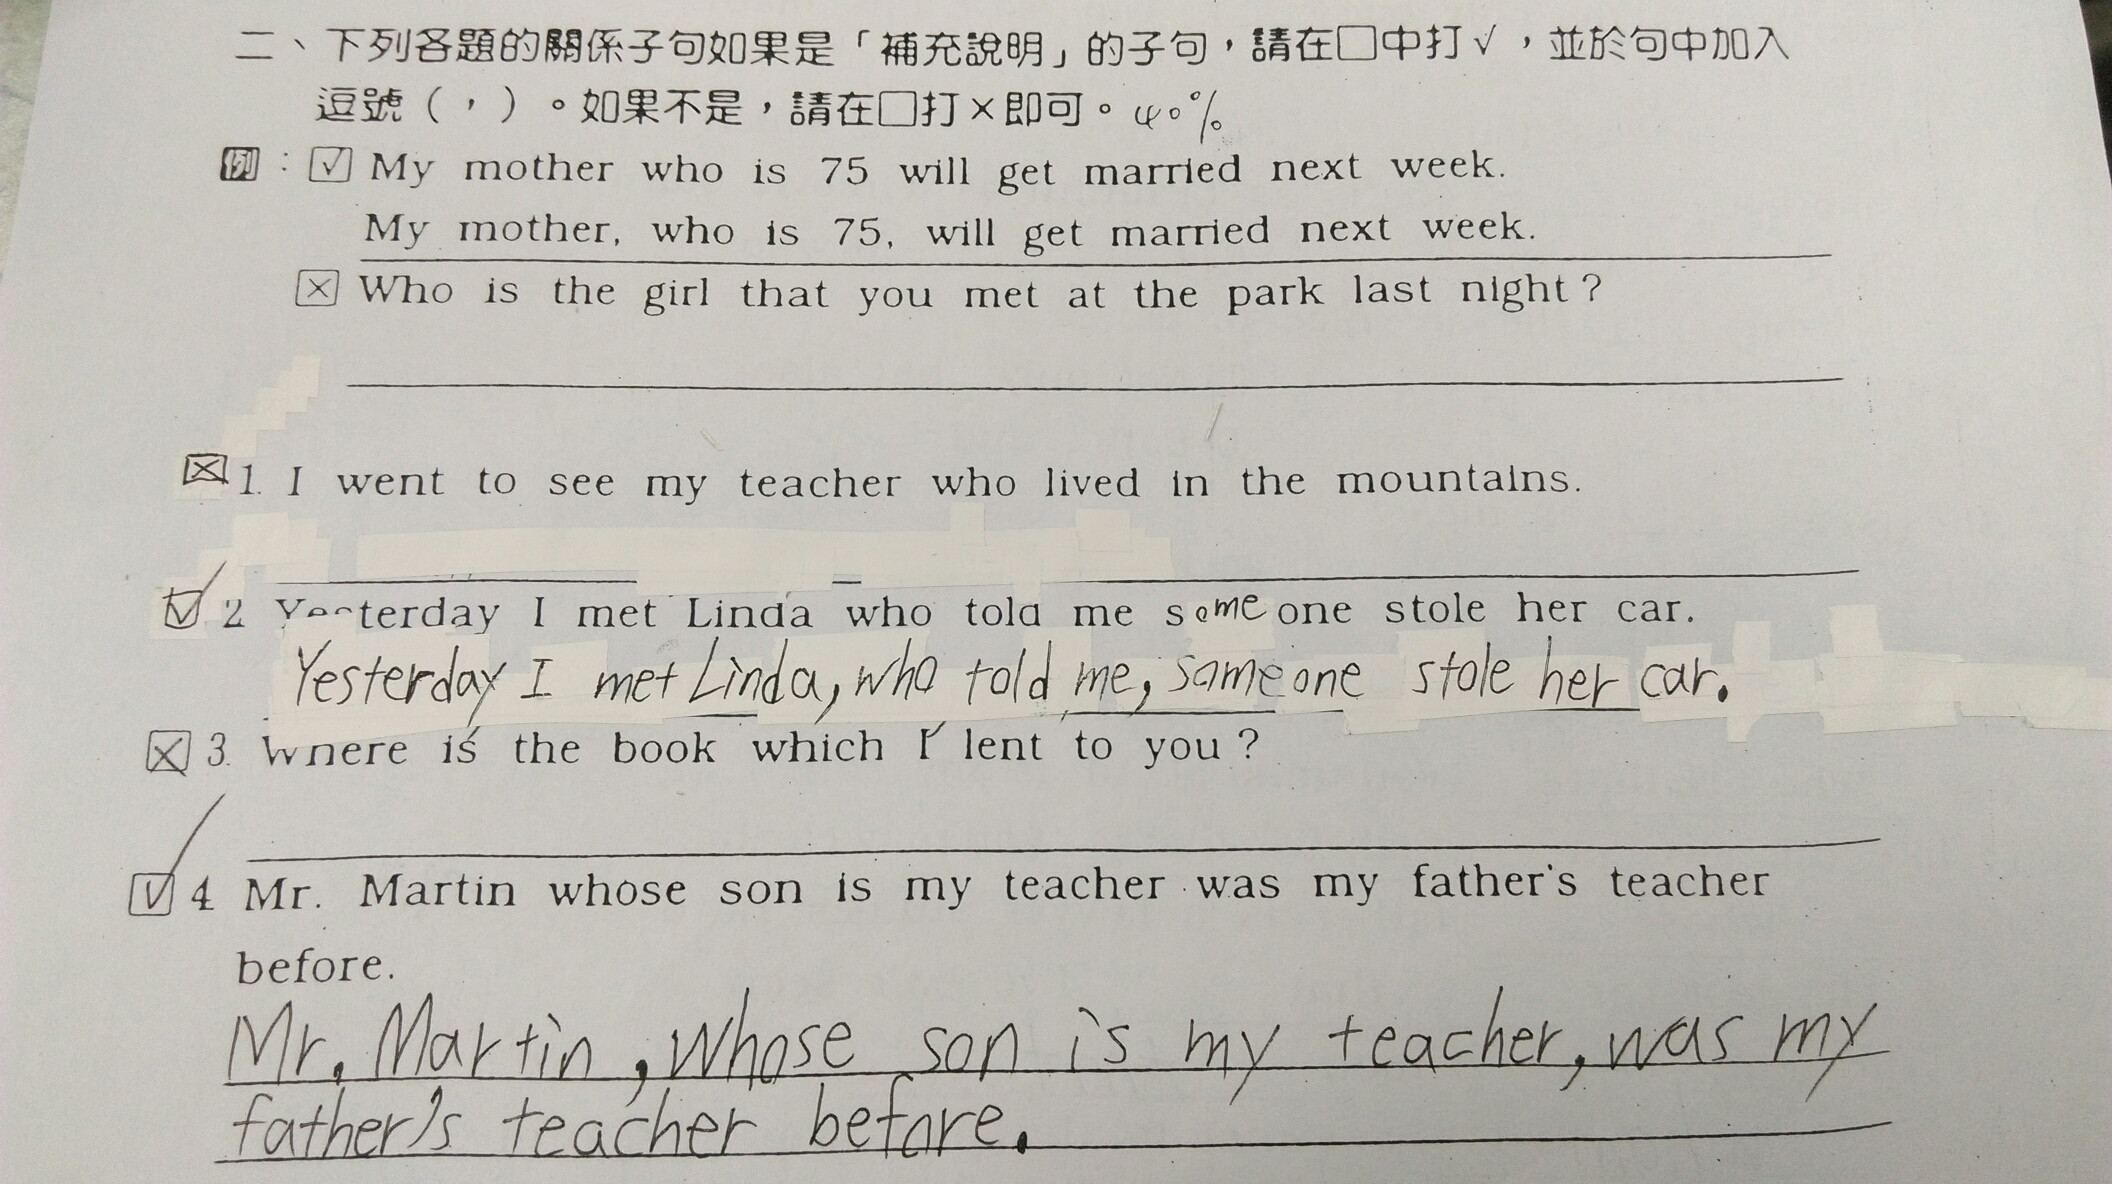 二、下列各題的關係子句如果是「補充說明」的子句，請在□中打√，並於句中加入
逗號（，）。如果不是，請在□打×即可。40%
例：☑ My mother who is 75 will get married next week.
My mother, who is 75, will get married next week.
☒ Who is the girl that you met at the park last night?
☒ 1. I went to see my teacher who lived in the mountains.
☑ 2 Yesterday I met Linda who told me some one stole her car.
Yesterday I met Linda, who told me, some one stole her car.
☒ 3. Where is the book which I lent to you?
☑ 4 Mr. Martin whose son is my teacher was my father's teacher
before.
Mr. Martin, whose son is my teacher, was my
father's teacher before.